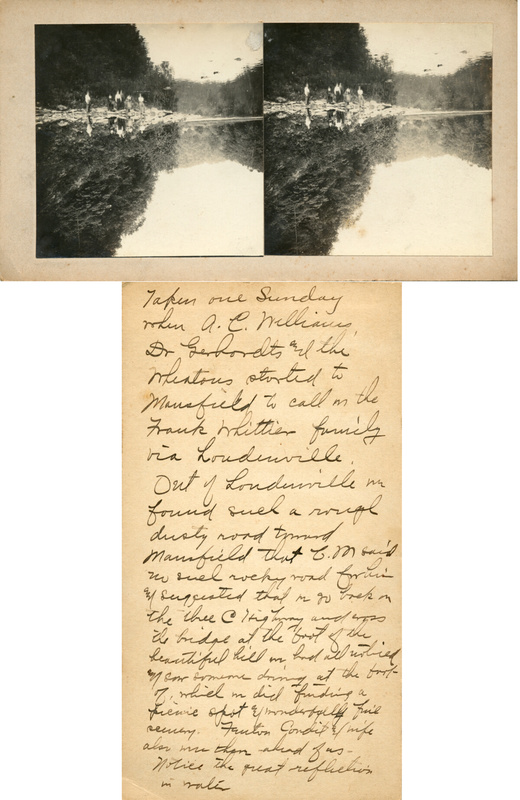 Taken one Sunday
when A. C. Williams,
Dr Gerhardts & the
Wheatons started to
Mansfield to call on the
Frank Whittier family
via Loudenville.
Out of Loudenville we
found such a rough
dusty road toward
Mansfield that C. M said
no such rocky road for him
& suggested that we go back on
the three C Highway and cross
the bridge at the foot of the
beautiful hill we had all noticed
& saw someone driving at the foot
of, which we did finding a
picnic spot & wonderfully fine
scenery. Fenton Condit & wife
also were there ahead of us -
Notice the great reflection
in water